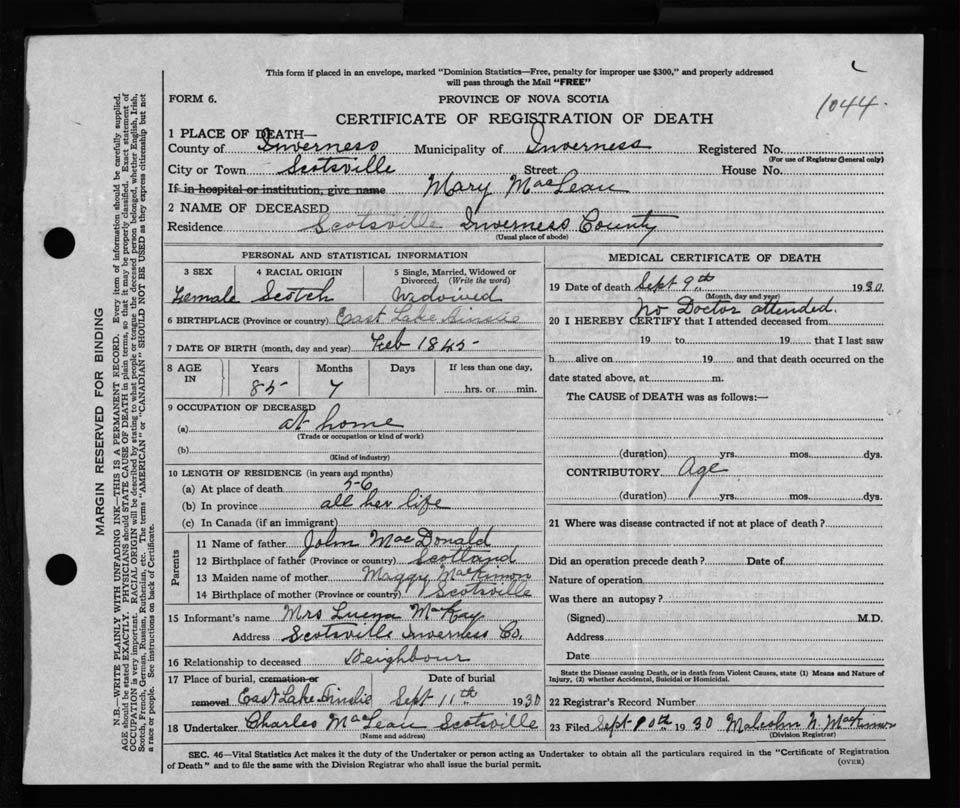 This form if placed in an envelope, marked "Dominion Statistics—Free, penalty for improper use $300," and properly addressed
will pass through the Mail "FREE"
FORM 6.
PROVINCE OF NOVA SCOTIA
1044.
CERTIFICATE OF REGISTRATION OF DEATH
1 PLACE OF DEATH—
County of Inverness Municipality of Inverness Registered No.
(For use of Registrar General only)
City or Town Scotsville Street House No.
If in hospital or institution, give name Mary MacLean
2 NAME OF DECEASED
Residence Scotsville Inverness County
(Usual place of abode)
PERSONAL AND STATISTICAL INFORMATION
3 SEX 4 RACIAL ORIGIN 5 Single, Married, Widowed or
Divorced. (Write the word)
Female Scotch Widowed
6 BIRTHPLACE (Province or country) East Lake Ainslie
7 DATE OF BIRTH (month, day and year) Feb 1845
8 AGE IN Years Months Days If less than one day,
85 7 hrs. or min.
9 OCCUPATION OF DECEASED
(a) at home
(Trade or occupation or kind of work)
(b)
(Kind of industry)
10 LENGTH OF RESIDENCE (in years and months)
(a) At place of death 56
(b) In province all her life
(c) In Canada (if an immigrant)
Parents
11 Name of father John MacDonald
12 Birthplace of father (Province or country) Scotland
13 Maiden name of mother Maggy MacKinnon
14 Birthplace of mother (Province or country) Scotsville
15 Informant's name Mrs MacKay
Address Scotsville Inverness Co.
16 Relationship to deceased Neighbour
17 Place of burial, cremation or Date of burial
removal East Lake Ainslie Sept 11th 1930
18 Undertaker Charles MacLean Scotsville
(Name and address)
MEDICAL CERTIFICATE OF DEATH
19 Date of death Sept 9th 1930
(Month, day and year)
No Doctor attended.
20 I HEREBY CERTIFY that I attended deceased from
19 to 19 that I last saw
h alive on 19 and that death occurred on the
date stated above, at m.
The CAUSE of DEATH was as follows:—
(duration) yrs. mos. dys.
CONTRIBUTORY Age
(duration) yrs. mos. dys.
21 Where was disease contracted if not at place of death?
Did an operation precede death? Date of
Nature of operation
Was there an autopsy?
(Signed) M.D.
Address
Date
State the Disease causing Death, or in death from Violent Causes, state (1) Means and Nature of
Injury, (2) whether Accidental, Suicidal or Homicidal.
22 Registrar's Record Number
23 Filed Sept 1930 Malcolm N. MacKinnon
(Division Registrar)
SEC. 46—Vital Statistics Act makes it the duty of the Undertaker or person acting as Undertaker to obtain all the particulars required in the "Certificate of Registration
of Death" and to file the same with the Division Registrar who shall issue the burial permit.
(OVER)
MARGIN RESERVED FOR BINDING
N.B.—WRITE PLAINLY WITH UNFADING INK—THIS IS A PERMANENT RECORD. Every item of information should be carefully supplied.
AGE should be stated EXACTLY. PHYSICIANS should STATE CAUSE OF DEATH in plain terms, so that it may be properly classified. Exact statement of
OCCUPATION is very important. RACIAL ORIGIN will be described by stating to what people or tongue the deceased person belonged, whether English, Irish,
Scotch, French, German, Russian, Ruthenian, etc. The terms "AMERICAN" or "CANADIAN" SHOULD NOT BE USED as they express citizenship but not
a race or people. See instructions on back of Certificate.